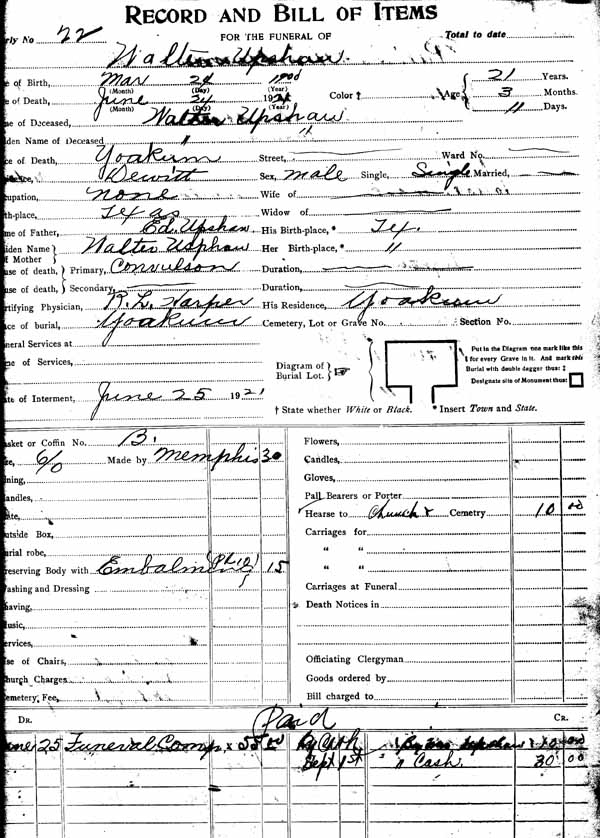 RECORD AND BILL OF ITEMS
rly No 22 FOR THE FUNERAL OF Total to date
Walter Upshaw.
e of Birth, Mar 24 1900
(Month) (Day) (Year)
e of Death, June 24 1921 Color † Age 21 Years. 3 Months. 11 Days.
(Month) (Day) (Year)
me of Deceased, Walter Upshaw
iden Name of Deceased "
ce of Death, Yoakum Street, Ward No.
Dewitt Sex, male Single, Single Married,
upation, none Wife of
th-place, Texas Widow of
me of Father, Ed. Upshaw His Birth-place,* Tex.
iden Name of Mother Walter Upshaw Her Birth-place,* "
use of death, Primary, Convulson Duration,
use of death, Secondary, Duration,
rtifying Physician, R. L. Harper His Residence, Yoakum
ce of burial, Yoakum Cemetery, Lot or Grave No. Section No.
neral Services at
me of Services,
Diagram of Burial Lot.
Put in the Diagram one mark like this
for every Grave in it. And mark this
Burial with double dagger thus: ‡
Designate site of Monument thus:
ate of Interment, June 25 1921
† State whether White or Black. * Insert Town and State.
asket or Coffin No. B.
ze, 6/0 Made by Memphis 30
ning,
andles,
ate,
utside Box,
urial robe,
reserving Body with Embalming 15
ashing and Dressing
having,
usic,
ervices,
se of Chairs,
hurch Charges
emetery Fee,
Flowers,
Candles,
Gloves,
Pall Bearers or Porter
Hearse to Church & Cemetry 10 00
Carriages for
" "
" "
Carriages at Funeral
Death Notices in
Officiating Clergyman
Goods ordered by
Bill charged to
DR. Paid CR.
une 25 Funeral Comp x 55
Sept 1st " Cash 30 00